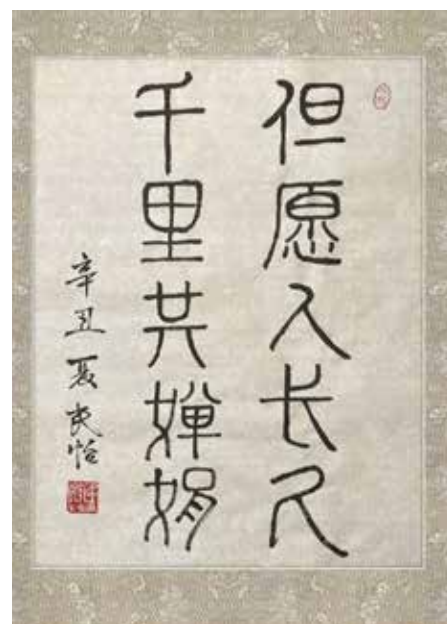 但愿人长久
千里共婵娟
辛丑夏民怡